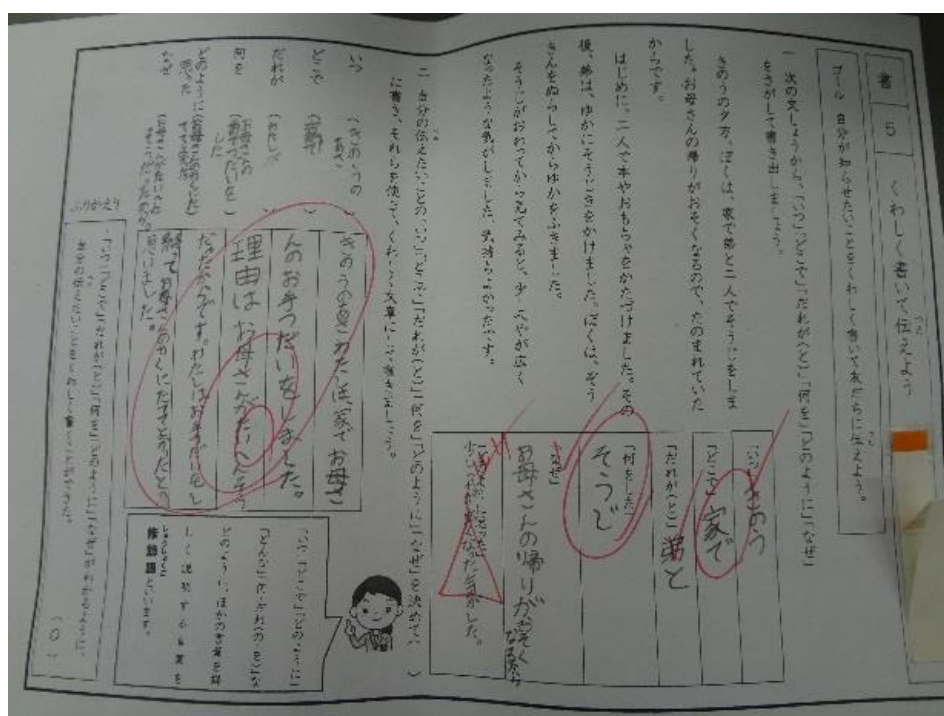 書
5
くわしく書いて伝えよう
ゴール 自分が知らせたいことをくわしく書いて友だちに伝えよう。
一 次の文しょうから、「いつ」「どこで」「だれが(と)」「何を」「どのように」「なぜ」
をさがして書き出しましょう。
きのうの夕方、ぼくは、家で弟と二人でそうじをしま
した。お母さんの帰りがおそくなるので、たのまれていた
からです。
はじめに、二人で本やおもちゃをかたづけました。その
後、弟は、ゆかにそうじきをかけました。ぼくは、ぞう
きんをぬらしてからゆかをふきました。
そうじがおわってから見てみると、少しへやが広く
なったような気がしました。気持ちよかったです。
「いつ」きのう
「どこで」家で
「だれが(と)」弟と
「何をした」
そうじ
「なぜ」
お母さんの帰りがおそく
なるから
少しへやが広くなった気がした。
二 自分の伝えたいことの「いつ」「どこで」「だれが(と)」「何を」「どのように」「なぜ」を決めて( )
に書き、それらを使って、くわしく文章にして書きましょう。
いつ (きのうの
あさ)
どこで (家で)
だれが (わたし)
何を (お母さんの
おてつだいを
した)
どのように
思った
なぜ
きのうのあさわたしは家でお母さ
んのお手つだいをしました。
理由はお母さんがたいへんそう
だったからです。わたしはお手つだいをし
終ってお母さんのやくにたててよかったと
思いました。
「いつ」「どこで」「どのように」
「どんな」「だれ(何)の」「を」な
どのように、ほかの言葉を詳
しく説明する言葉を
修飾語といいます。
しゅうしょくご
ふりかえり
・「いつ」「どこで」「だれが(と)」「何を」「どのように」「なぜ」がわかるように、
自分の伝えたいことをくわしく書くことができた。
(〇)